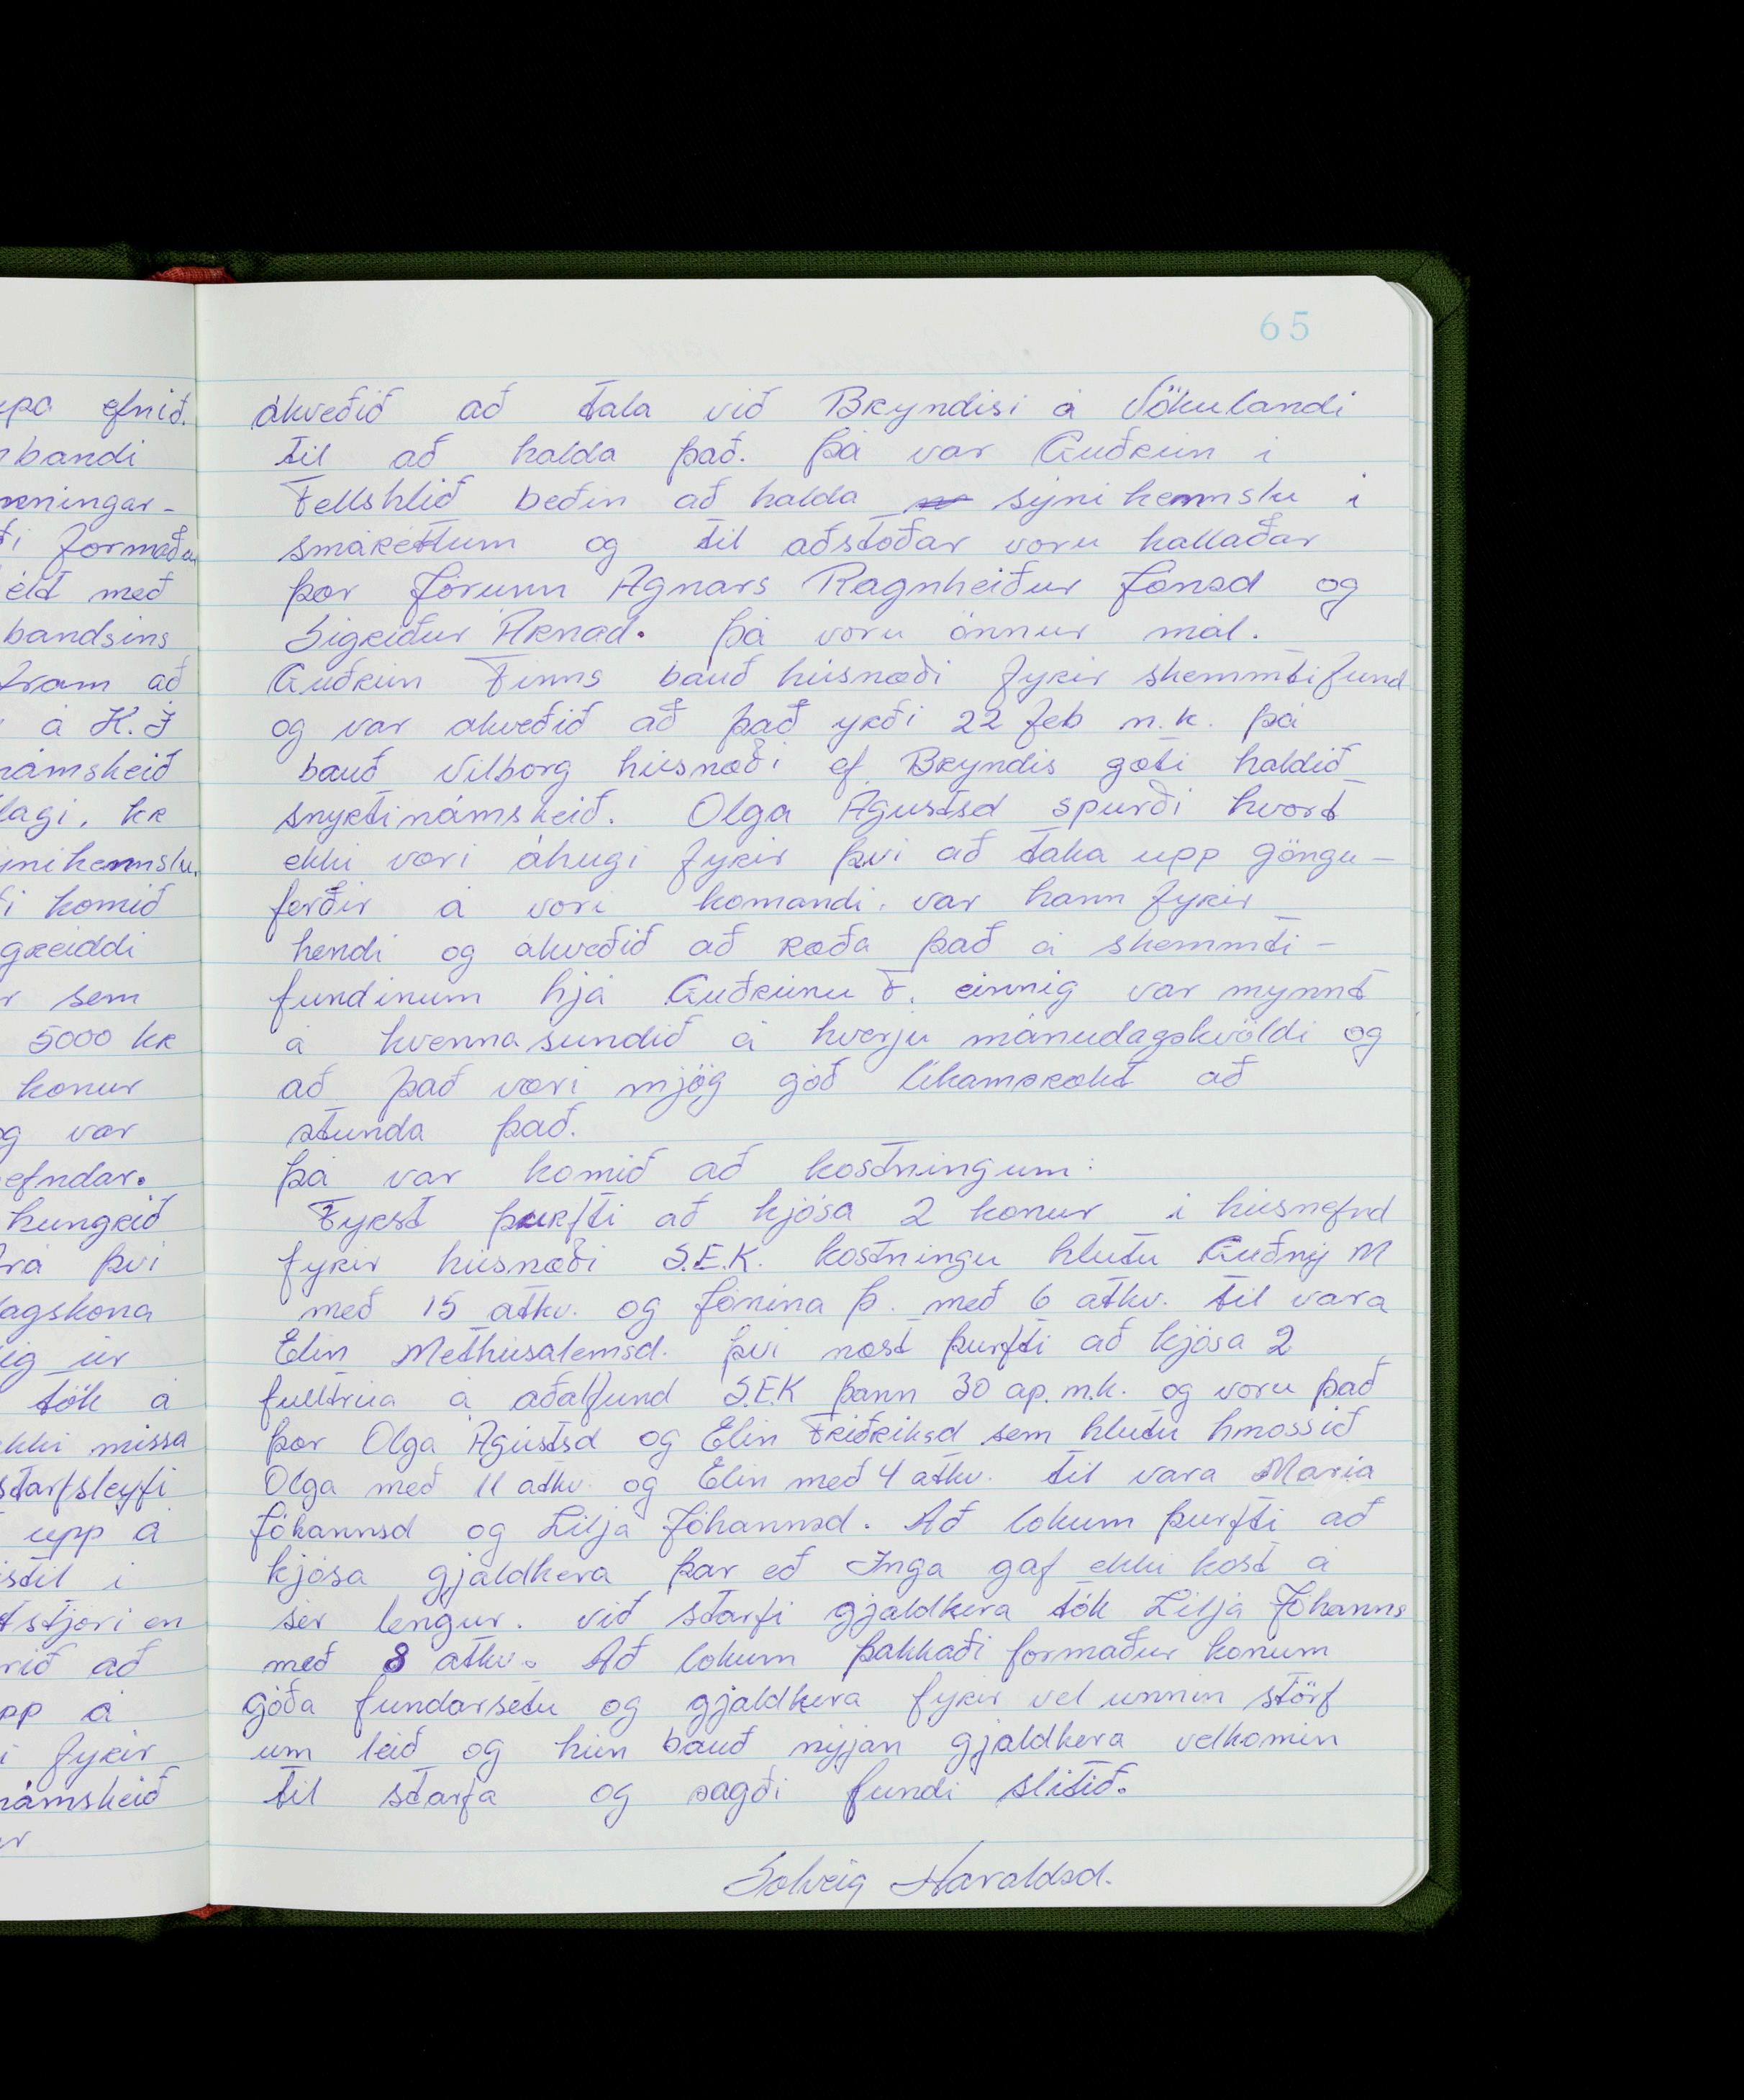 65
ákveðið að tala við Bryndísi á Vökulandi
til að halda það. Þá var Guðrún í
Fellshlíð beðin að halda sýnikennslu í
smáréttum og til aðstoðar voru kallaðar
þær Jórunn Agnars Ragnheiður Jónsd og
Sigríður Árnad. Þá voru önnur mál.
Guðrún Finns bauð húsnæði fyrir skemmtifund
og var ákveðið að það yrði 22 feb n.k. þá
bauð Vilborg húsnæði ef Bryndís gæti haldið
snyrtinámskeið. Olga Ágústsd spurði hvort
ekki væri áhugi fyrir því að taka upp göngu-
ferðir á vori komandi. var hann fyrir
hendi og ákveðið að ræða það á skemmti-
fundinum hjá Guðrúnu F. einnig var mynnt
á kvennasundið á hverju mánudagskvöldi og
að það væri mjög góð líkamsrækt að
stunda það.
Þá var komið að kostningum:
Fyrst þurfti að kjósa 2 konur í húsnefnd
fyrir húsnæði S.E.K. kostningu hlutu Guðný M
með 15 atkv. og Jónína Þ. með 6 atkv. til vara
Elín Methúsalemsd. því næst þurfti að kjósa 2
fulltrúa á aðalfund S.E.K þann 30 ap. m.k. og voru það
þær Olga Ágústsd og Elín Friðriksd sem hlutu hnossið
Olga með 11 atkv. og Elín með 4 atkv. til vara María
Jóhannsd og Lilja Jóhannsd. Að lokum þurfti að
kjósa gjaldkera þar eð Inga gaf ekki kost á
sér lengur. við starfi gjaldkera tók Lilja Jóhanns
með 8 atkv. Að lokum þakkaði formaður konum
góða fundarsetu og gjaldkera fyrir vel unnin störf
um leið og hún bauð nýjan gjaldkera velkomin
til starfa og sagði fundi slitið.
Solveig Haraldsd.
efnið.
bandi
formaður
með
bandsins
fram að
á K.J
námskeið
lagi. kr
komið
greiddi
sem
5000 kr
konur
og var
efndar.
því
úr
tók á
missa
starfsleyfi
upp á
í
en
að
á
fyrir
námskeið